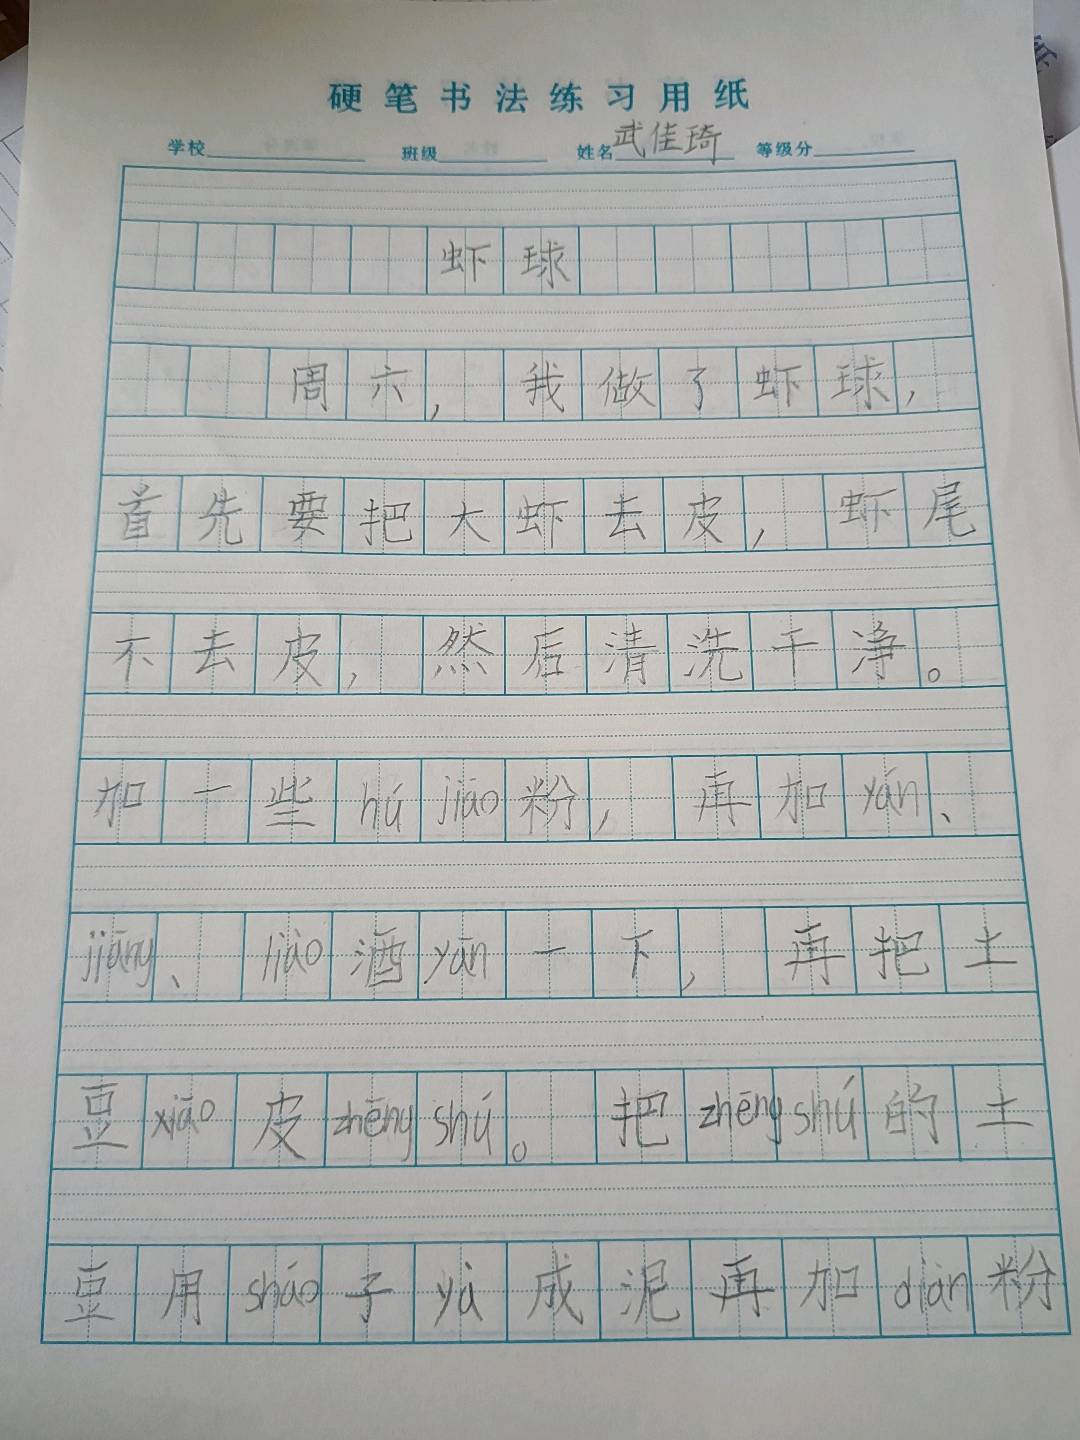 硬笔书法练习用纸
学校 班级 姓名 武佳琦 等级分
虾球
周六，我做了虾球，
首先要把大虾去皮，虾尾
不去皮，然后清洗干净。
加一些hú jiāo粉，再加yán、
jiāng、liào酒yān一下，再把土
豆xiāo皮zhēng shú。把zhēng shú的土
豆用sháo子yā成泥再加diàn粉